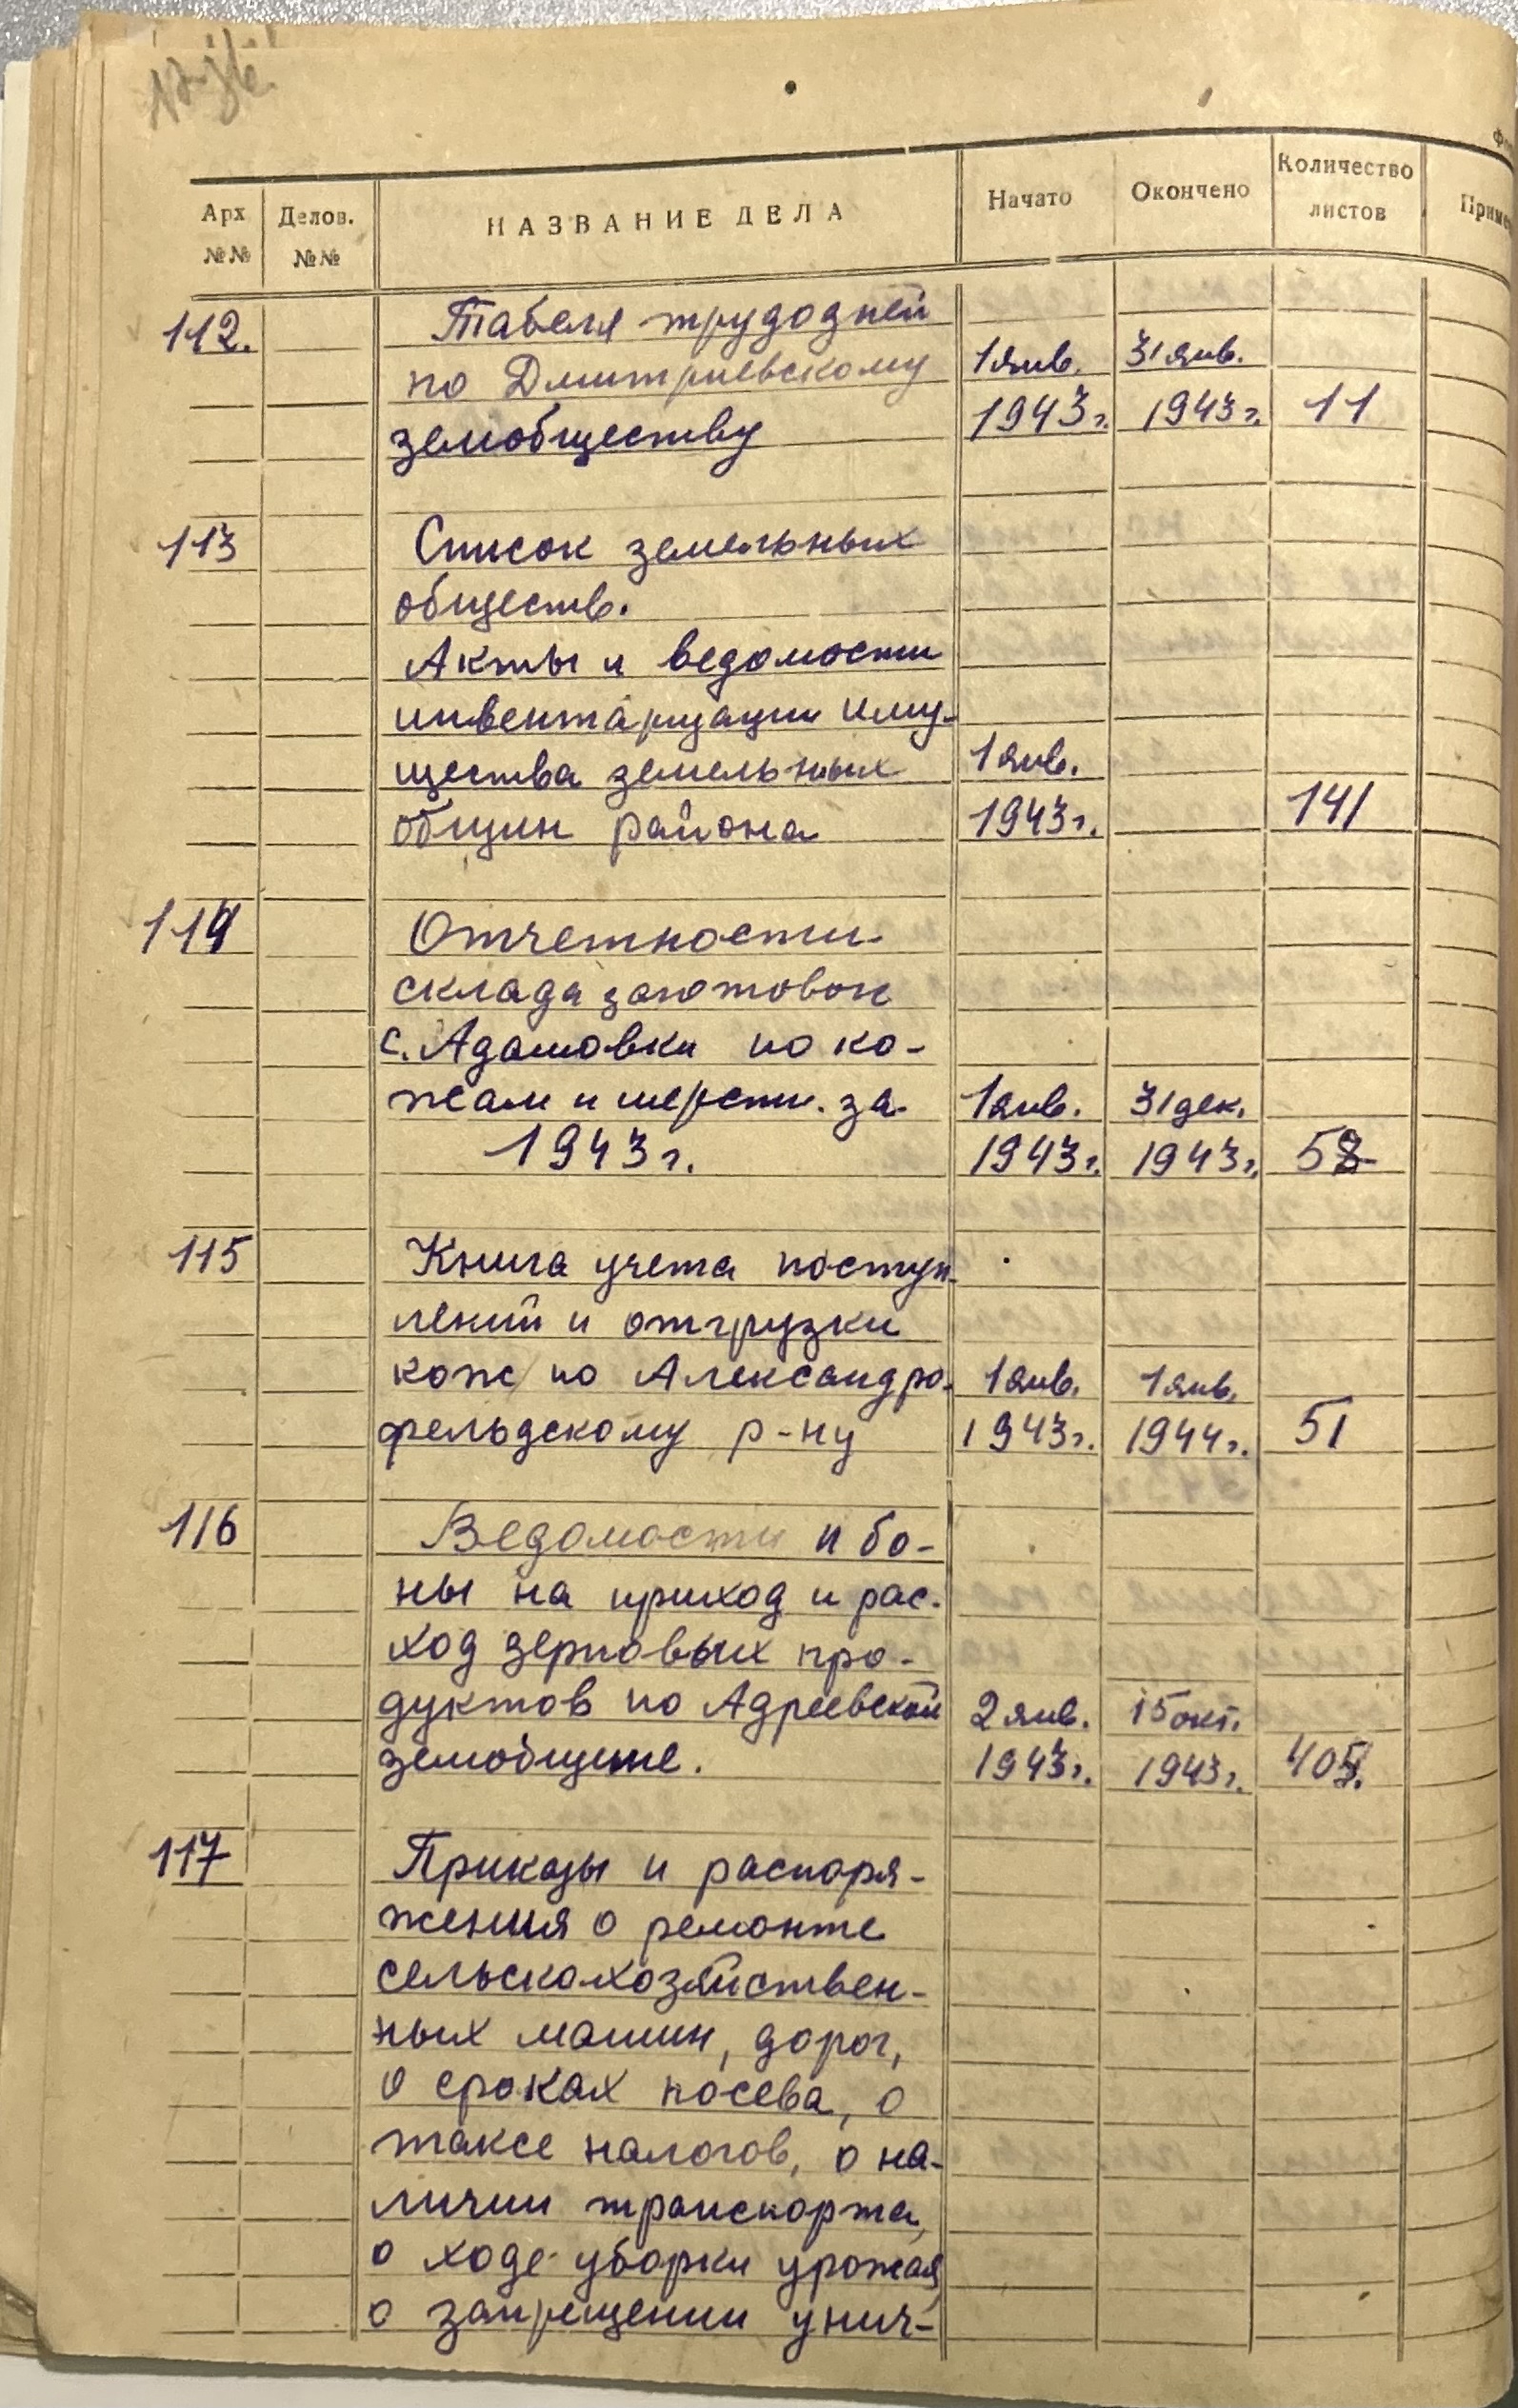 Арх №№ Делов. №№ НАЗВАНИЕ ДЕЛА Начато Окончено Количество листов
112. Табеля трудодней
по Дмитриевскому 1 янв. 31 янв.
земобществу 1943 г. 1943 г. 11
113 Список земельных
обществ.
Акты и ведомости
инвентаризации иму-
щества земельных 1 янв.
общин района 1943 г. 141
114 Отчетности
склада заготовок
с. Адамовки по ко-
жам и шерсти. за 1 янв. 31 дек.
1943 г. 1943 г. 1943 г.
115 Книга учета поступ-
лений и отгрузки
кож по Александро- 1 янв. 1 янв.
фельдскому р-ну 1943 г. 1944 г. 51
116 Ведомости и бо-
ны на приход и рас-
ход зерновых про-
дуктов по Адреевской 2 янв. 15 окт.
земобщине. 1943 г. 1943 г.
117 Приказы и распоря-
жения о ремонте
сельскохозяйствен-
ных машин, дорог,
о сроках посева, о
таксе налогов, о на-
личии транспорта,
о ходе уборки урожая,
о запрещении унич-